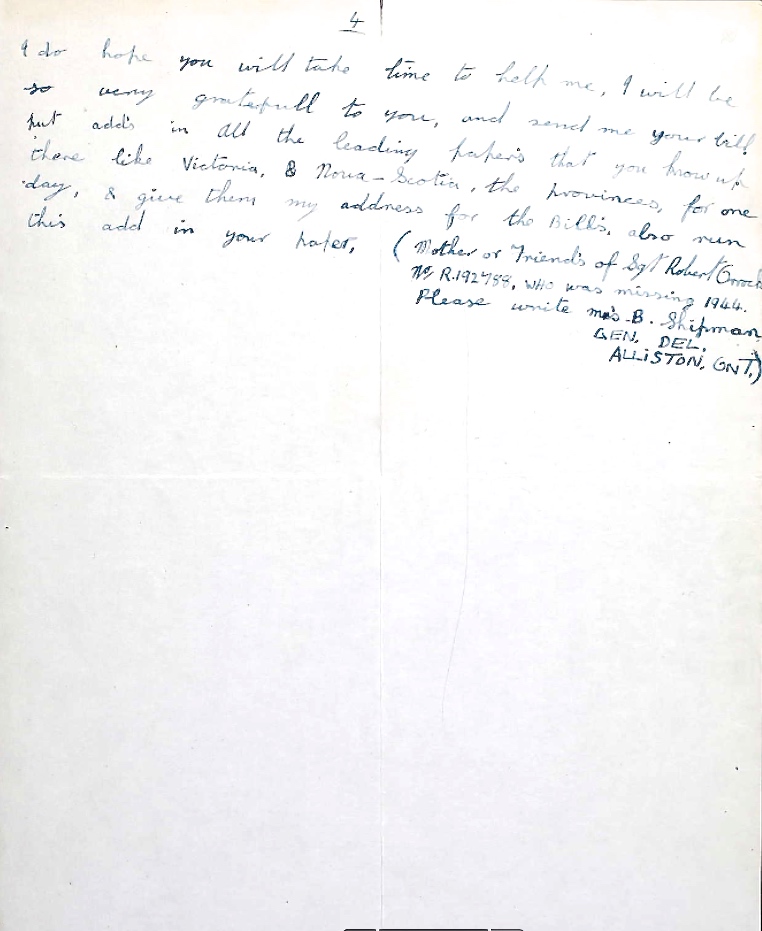 4
I do hope you will take time to help me, I will be
so very gratefull to you, and send me your bill
put add's in all the leading paper's that you know up
there like Victoria, & Nova-Scotia, the provinces, for one
day, & give them my address for the Bill's, also run
this add in your paper, (Mother or Friend's of Sgt Robert
No R.192788, WHO was missing 1944.
Please write mrs B. Shipman
GEN. DEL.
ALLISTON, ONT.)